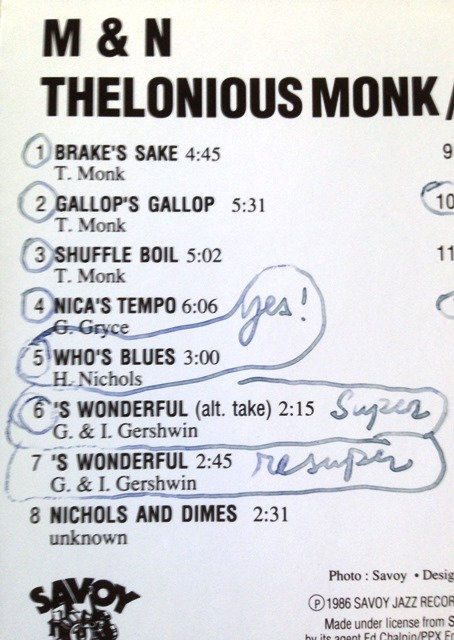 M & N
THELONIOUS MONK /
1 BRAKE'S SAKE 4:45
T. Monk
9
2 GALLOP'S GALLOP 5:31
T. Monk
10
3 SHUFFLE BOIL 5:02
T. Monk
11
4 NICA'S TEMPO 6:06
G. Gryce
yes!
5 WHO'S BLUES 3:00
H. Nichols
6 'S WONDERFUL (alt. take) 2:15 Super
G. & I. Gershwin
7 'S WONDERFUL 2:45 resuper
G. & I. Gershwin
8 NICHOLS AND DIMES 2:31
unknown
Photo : Savoy • Desig
SAVOY
Ⓟ 1986 SAVOY JAZZ RECOR
Made under license from S
by its agent Ed Chalpin/PPX E